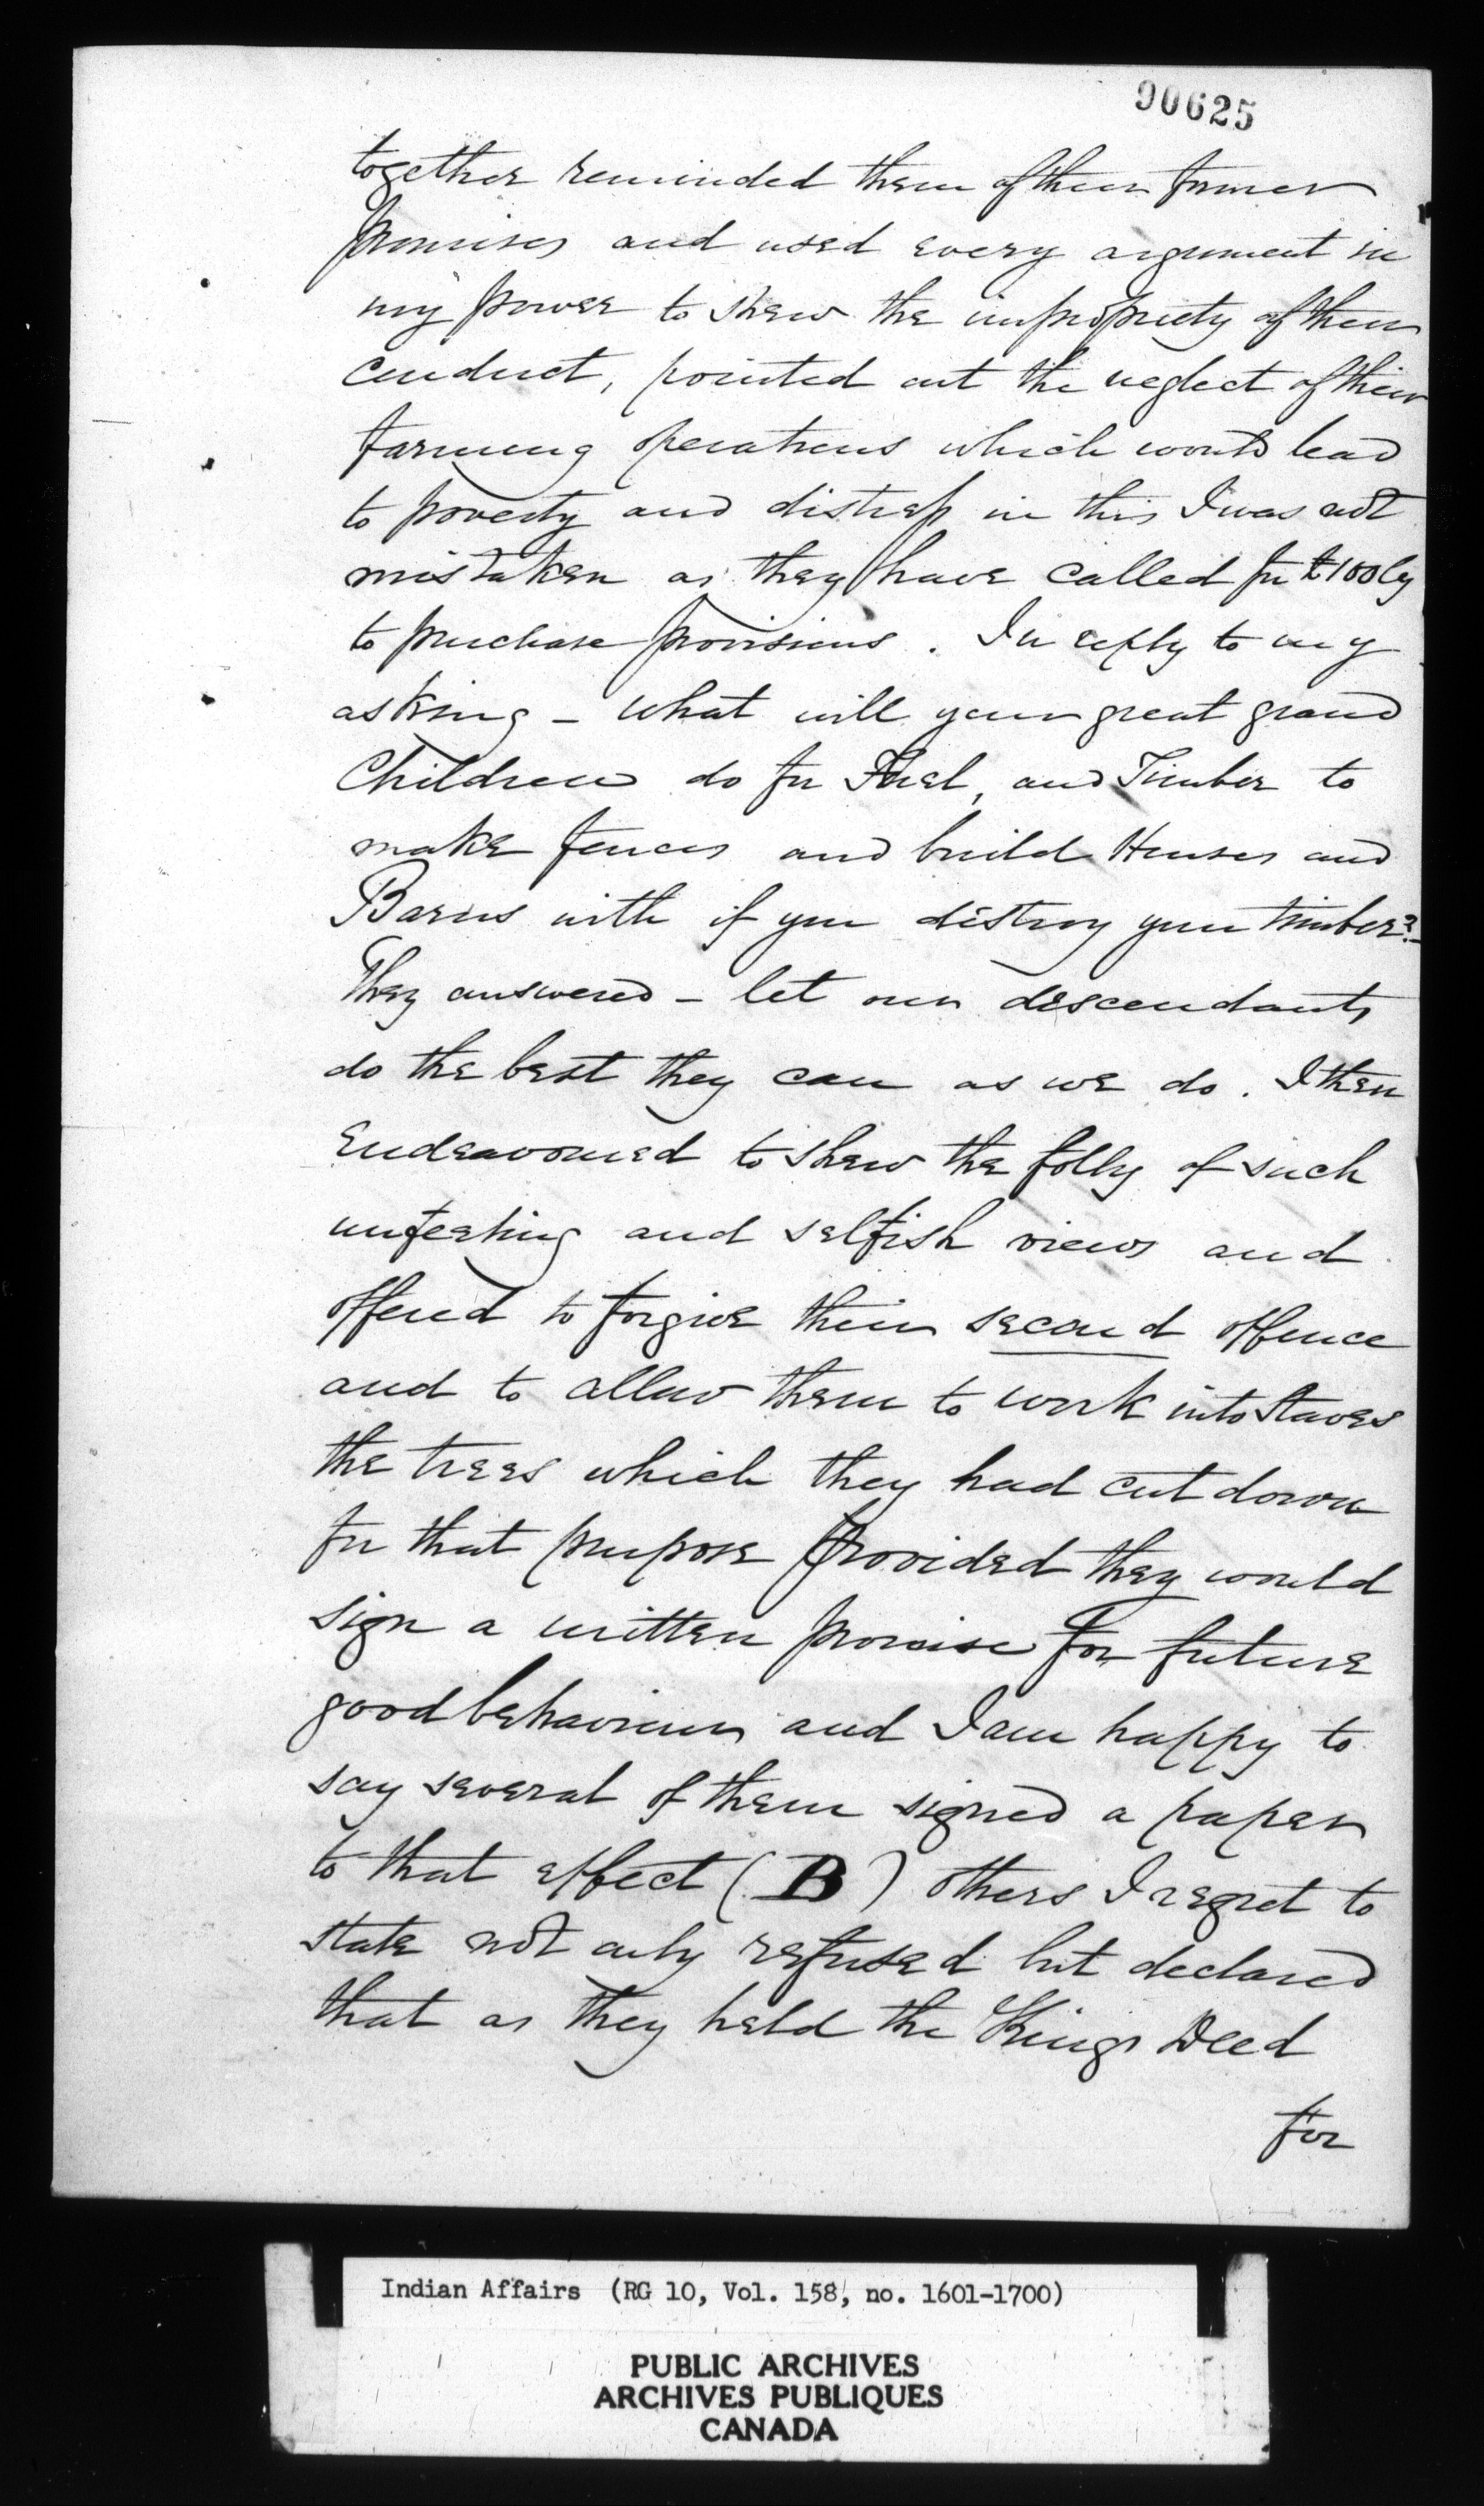 90625
together reminded them of their former
promises and used every argument in
my power to shew the impropriety of their
conduct, pointed out the neglect of their
farming operations which would lead
to poverty and distress in this I was not
mistaken as they have called for £100 Cy
to purchase provisions. In reply to my
asking - what will your great grand
Children do for Fuel, and Timber to
make fences and build Houses and
Barns with if you destroy your timber?
They answered - let our descendants
do the best they can as we do. I then
Endeavoured to shew the folly of such
unfeeling and selfish views and
offered to forgive their second offence
and to allow them to work into staves
the trees which they had cut down
for that purpose provided they would
sign a written promise for future
good behaviour and I am happy to
say several of them signed a paper
to that effect (B) others I regret to
state not only refused but declared
that as they held the Kings Deed
for
Indian Affairs (RG 10, Vol. 158, no. 1601-1700)
PUBLIC ARCHIVES
ARCHIVES PUBLIQUES
CANADA